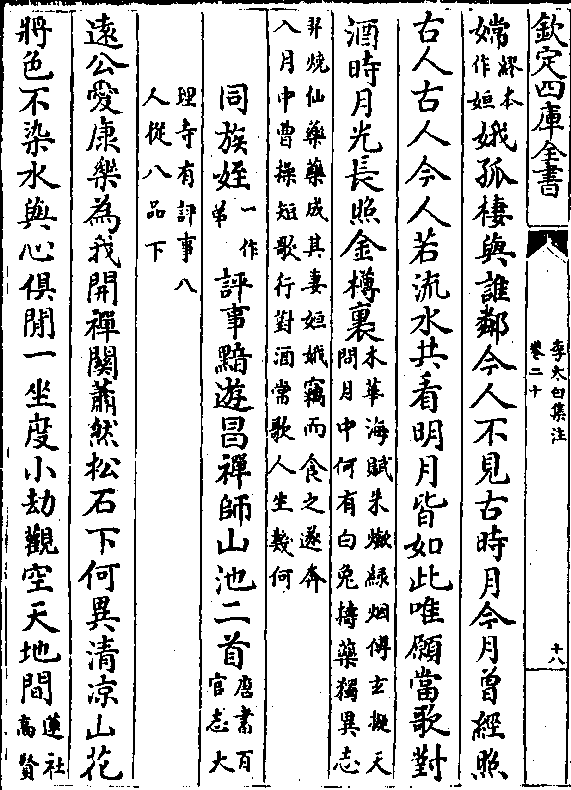 欽定四庫全書
李太白集注
卷二十
十八
嫦繆本作姮娥孤棲與誰鄰今人不見古時月今月曾經照
古人古人今人若流水共看明月皆如此唯願當歌對
酒時月光長照金樽裏木華海賦朱燉緑烟傅玄擬天
問月中何有白兔擣藥獨異志
羿燒仙藥藥成其妻姮娥竊而食之遂奔
入月中曹操短歌行對酒當歌人生幾何
同族姪一作弟評事黯遊昌禪師山池二首唐書百官志大
理寺有評事八
人從八品下
遠公愛康樂為我開禪關蕭然松石下何異清涼山花
將色不染水與心俱閒一坐度小劫觀空天地間蓮社高賢